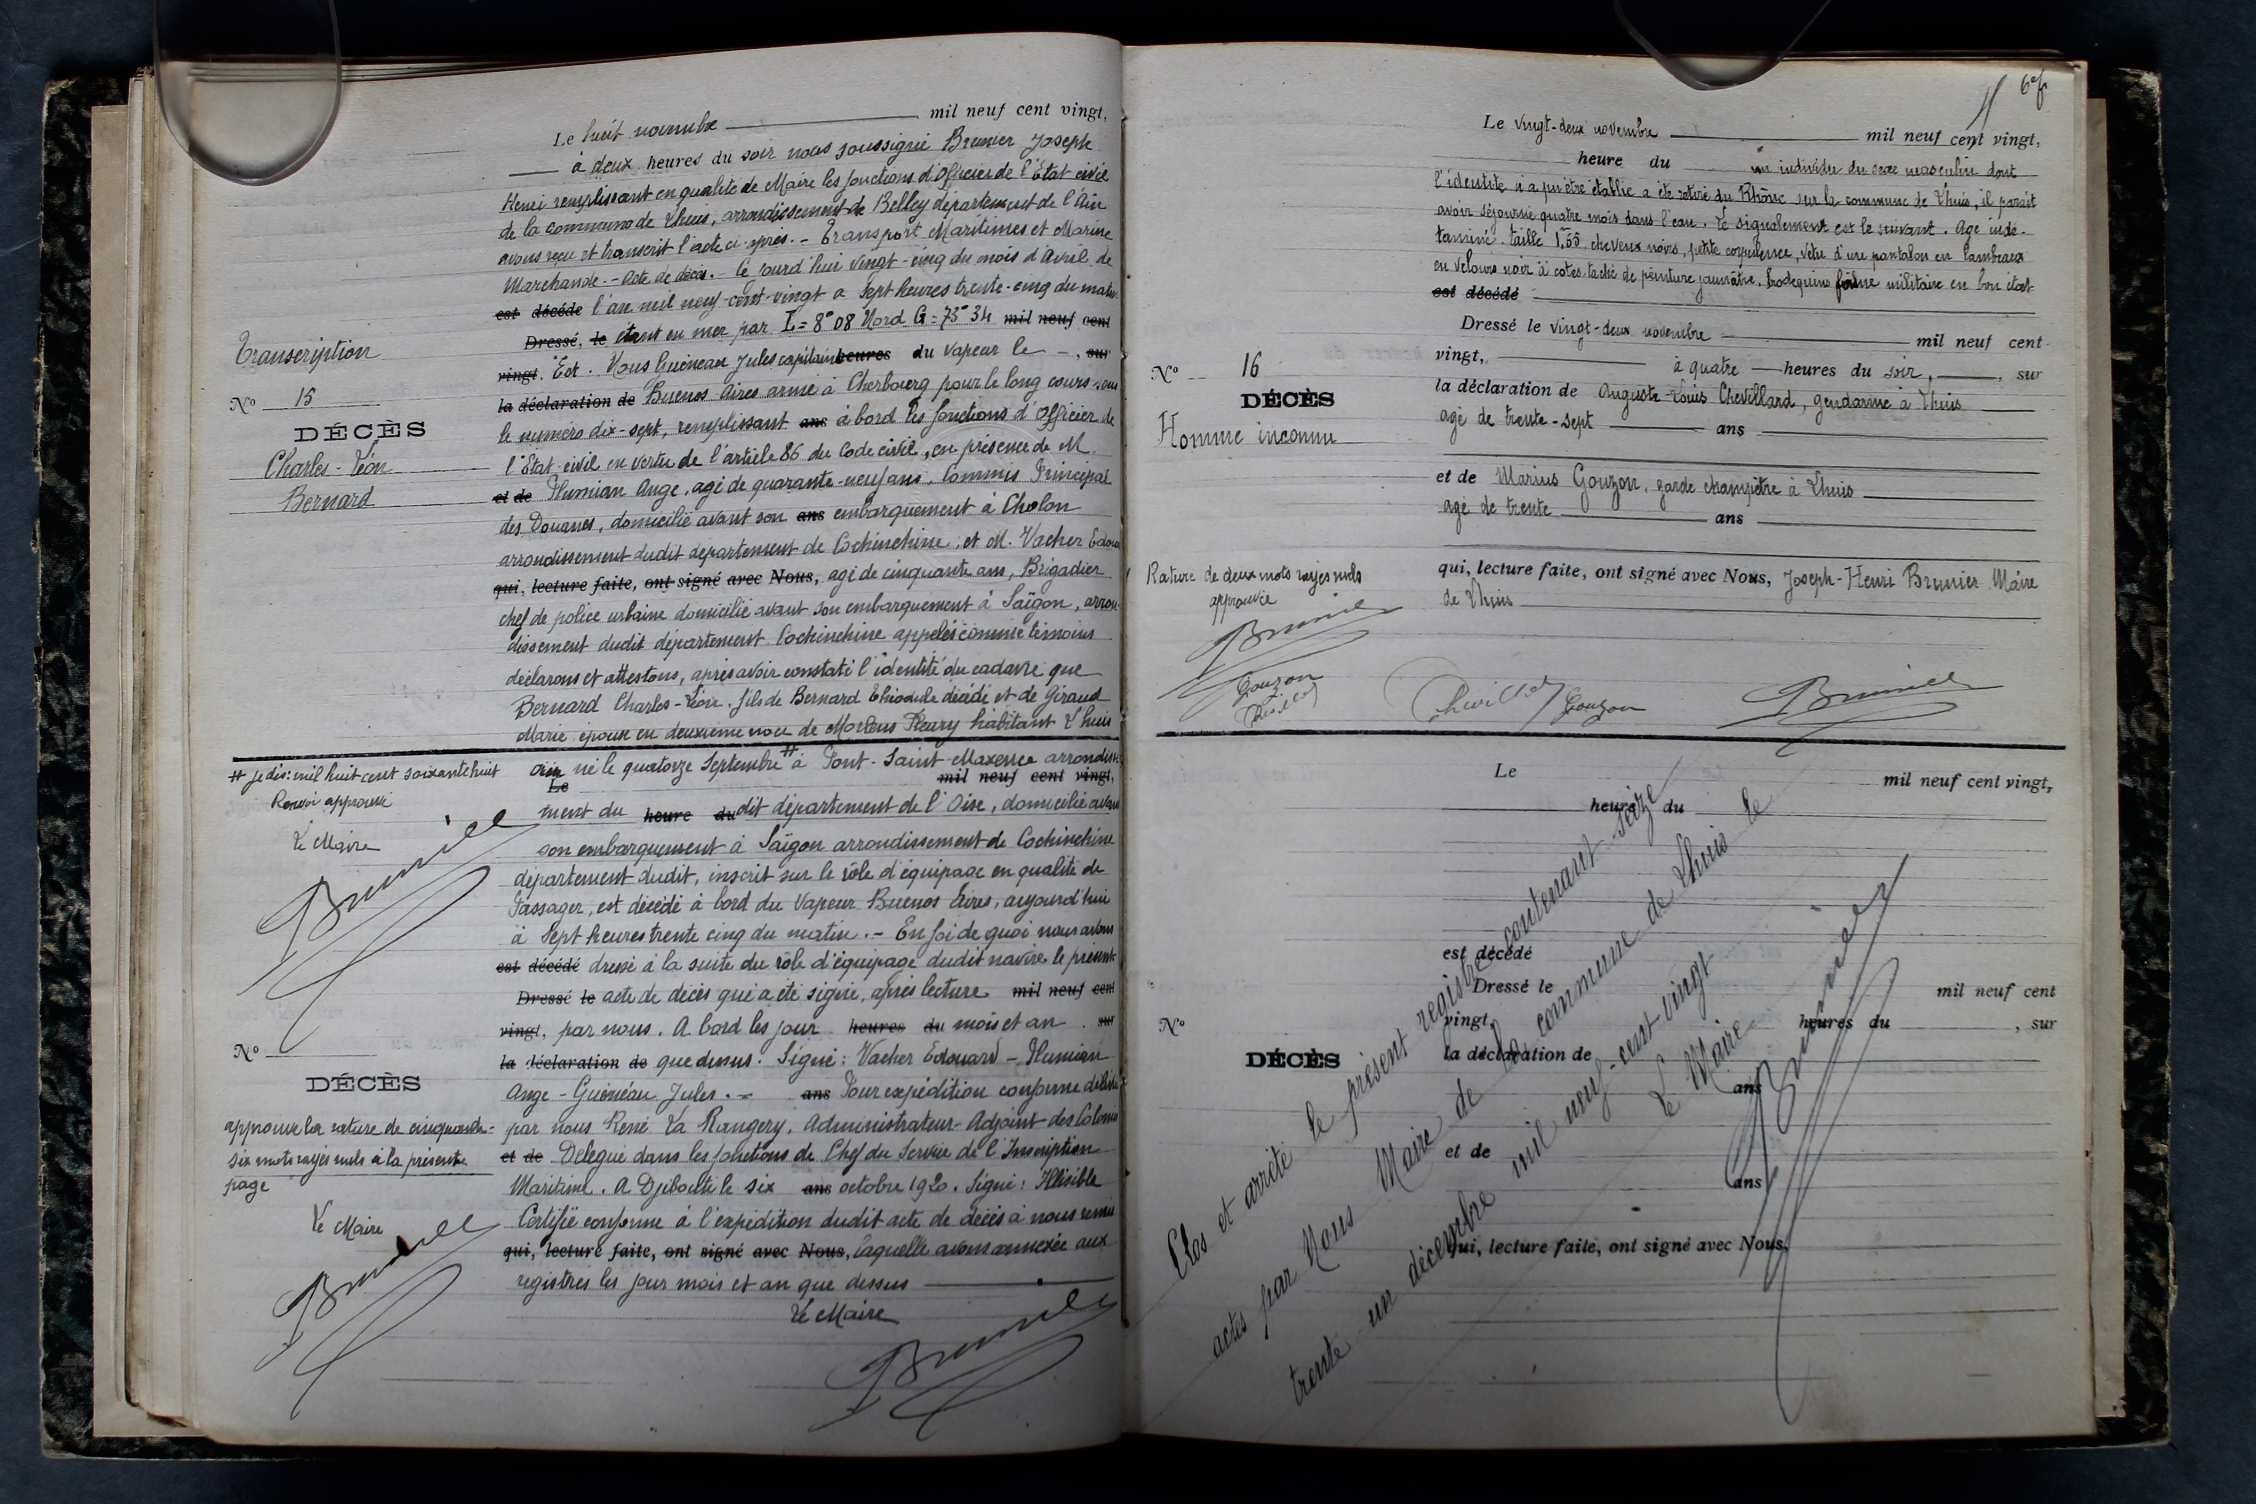 Le huit novembre mil neuf cent vingt,
à deux heures du soir nous soussigné Brunier Joseph
Henri remplissant en qualité de Maire les fonctions d'Officier de l'Etat civil
de la commune de Lhuis, arrondissement de Belley département de l'Ain
avons reçu et transcrit l'acte ci-après. - Transport Maritimes et Marine
Marchande. - Acte de décès. - Ce jourd'hui vingt-cinq du mois d'Avril de
est décédé l'an mil neuf-cent-vingt a sept heures trente-cinq du matin
Dressé, le étant en mer par L = 8° 08 Nord G = 73° 34 mil neuf cent
vingt. Est. Nous Guéneau Jules capitaine heures du vapeur le -, sur
la déclaration de Buenos Aires armé à Cherbourg pour le long cours sous
le numéro dix-sept, remplissant ans à bord les fonctions d'Officier de
l'Etat-civil en vertu de l'article 86 du Code civil, en présence de M.
et de Ange, agé de quarante-neuf ans, Commis Principal
des Douanes, domicilié avant son ans embarquement à Cholon
arrondissement dudit departement de Cochinchine, et M. Vacher Edouard
qui, lecture faite, ont signé avec Nous, agé de cinquante ans, Brigadier
chef de police urbaine domicilié avant son embarquement à Saïgon, arron
dissement dudit département Cochinchine appelés comme témoins
déclarons et attestons, après avoir constaté l'identité du cadavre que
Bernard Charles-Léon, fils de Bernard décédé et de Giraud
Marie épouse en deuxième noce de Fleury habitant Lhuis
Transcription
No 15
DÉCÈS
Charles-Léon
Bernard
Ain né le quatorze Septembre # à Pont-Saint-Maxence arrondisse
Le mil neuf cent vingt,
ment du heure du dit département de l'Oise, domicilié avant
son embarquement à Saïgon arrondissement de Cochinchine
département dudit, inscrit sur le rôle d'équipage en qualité de
Passager, est décédé à bord du Vapeur Buenos Aires, aujourd'hui
à Sept heures trente cinq du matin. - En foi de quoi nous avons
est décédé dressé à la suite du rôle d'équipage dudit navire le présent
Dressé le acte de décès qui a été signé, après lecture mil neuf cent
vingt, par nous. A bord les jour heures du mois et an . sur
la déclaration de que dessus. Signé: Vacher Edouard -
Ange - Guéneau Jules. - ans Pour expédition conforme délivrée
par nous René La Rangery, Administrateur-Adjoint des Colonies
et de Délégué dans les fonctions de Chef du Service de l'Inscription
Maritime. A Djibouti le six ans octobre 1920. Signé: Illisible
Certifié conforme à l'expédition dudit acte de décès à nous remis
qui, lecture faite, ont signé avec Nous, laquelle avons annexée aux
registres les jour mois et an que dessus
Le Maire
Brunier
# je dis: mil huit cent soixante huit
Renvoi approuvé
Le Maire
Brunier
No
DÉCÈS
approuve la rature de cinquante-
six mots rayés nuls à la présente
page
Le Maire
Brunier
Le vingt-deux novembre mil neuf cent vingt,
heure du un individu du sexe masculin dont
l'identité n'a pu être établie a été retiré du Rhône sur la commune de Lhuis, il parait
avoir séjourné quatre mois dans l'eau. Le signalement est le suivant. Age indé-
terminé. taille 1m,65 cheveux noirs, petite corpulence, vêtu d'un pantalon en lambeaux
en velours noir à cotes taché de peinture jaunâtre, brodequins forme militaire en bon état
est décédé
Dressé le vingt-deux novembre mil neuf cent
vingt, à quatre heures du soir, , sur
la déclaration de Auguste-Louis Chevillard, gendarme à Lhuis
agé de trente-sept ans
et de Marius Gouzon, garde champêtre à Lhuis
agé de trente ans
qui, lecture faite, ont signé avec Nous, Joseph-Henri Brunier Maire
de Lhuis
Chevillard Gouzon Brunier
No 16
DÉCÈS
Homme inconnu
Rature de deux mots rayés nuls
approuvée
Brunier
Gouzon
Chevillard
Le mil neuf cent vingt,
heure du
est décédé
Dressé le mil neuf cent
vingt, heures du , sur
la déclaration de
ans
et de
ans
qui, lecture faite, ont signé avec Nous,
No
DÉCÈS
Clos et arrêté le présent registre contenant seize
actes par Nous Maire de la commune de Lhuis le
trente-un décembre mil neuf-cent-vingt
Le Maire
Brunier